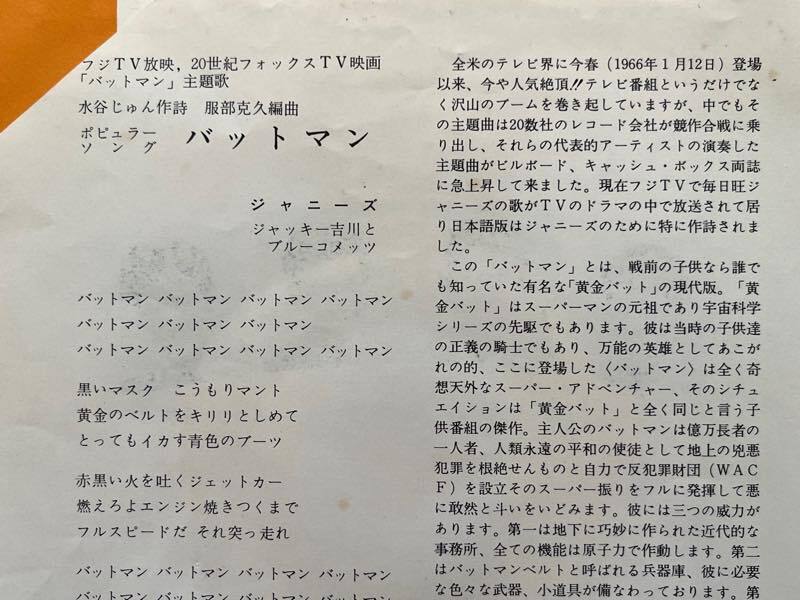 フジTV放映，20世紀フォックスTV映画
「バットマン」主題歌
水谷じゅん作詩　服部克久編曲
ポピュラー
ソング
バットマン
ジャニーズ
ジャッキー吉川と
ブルーコメッツ
バットマン バットマン バットマン バットマン
バットマン バットマン バットマン
バットマン バットマン バットマン バットマン
黒いマスク　こうもりマント
黄金のベルトをキリリとしめて
とってもイカす青色のブーツ
赤黒い火を吐くジェットカー
燃えろよエンジン焼きつくまで
フルスピードだ それ突っ走れ
バットマン バットマン バットマン バットマン
バットマン バットマン バットマン バットマン
全米のテレビ界に今春（1966年１月12日）登場
以来、今や人気絶頂!!テレビ番組というだけでな
く沢山のブームを巻き起していますが、中でもそ
の主題曲は20数社のレコード会社が競作合戦に乗
り出し、それらの代表的アーティストの演奏した
主題曲がビルボード、キャッシュ・ボックス両誌
に急上昇して来ました。現在フジTVで毎日旺ジ
ャニーズの歌がTVのドラマの中で放送されて居
り日本語版はジャニーズのために特に作詩されま
した。
この「バットマン」とは、戦前の子供なら誰で
も知っていた有名な「黄金バット」の現代版。「黄
金バット」はスーパーマンの元祖であり宇宙科学
シリーズの先駆でもあります。彼は当時の子供達
の正義の騎士でもあり、万能の英雄としてあこが
れの的、ここに登場した〈バットマン〉は全く奇
想天外なスーパー・アドベンチャー、そのシチュ
エイションは「黄金バット」と全く同じと言う子
供番組の傑作。主人公のバットマンは億万長者の
一人者、人類永遠の平和の使徒として地上の兇悪
犯罪を根絶せんものと自力で反犯罪財団（WAC
F）を設立そのスーパー振りをフルに発揮して悪
に敢然と斗いをいどみます。彼には三つの威力が
あります。第一は地下に巧妙に作られた近代的な
事務所、全ての機能は原子力で作動します。第二
はバットマンベルトと呼ばれる兵器庫、彼に必要
な色々な武器、小道具が備なわっております。第